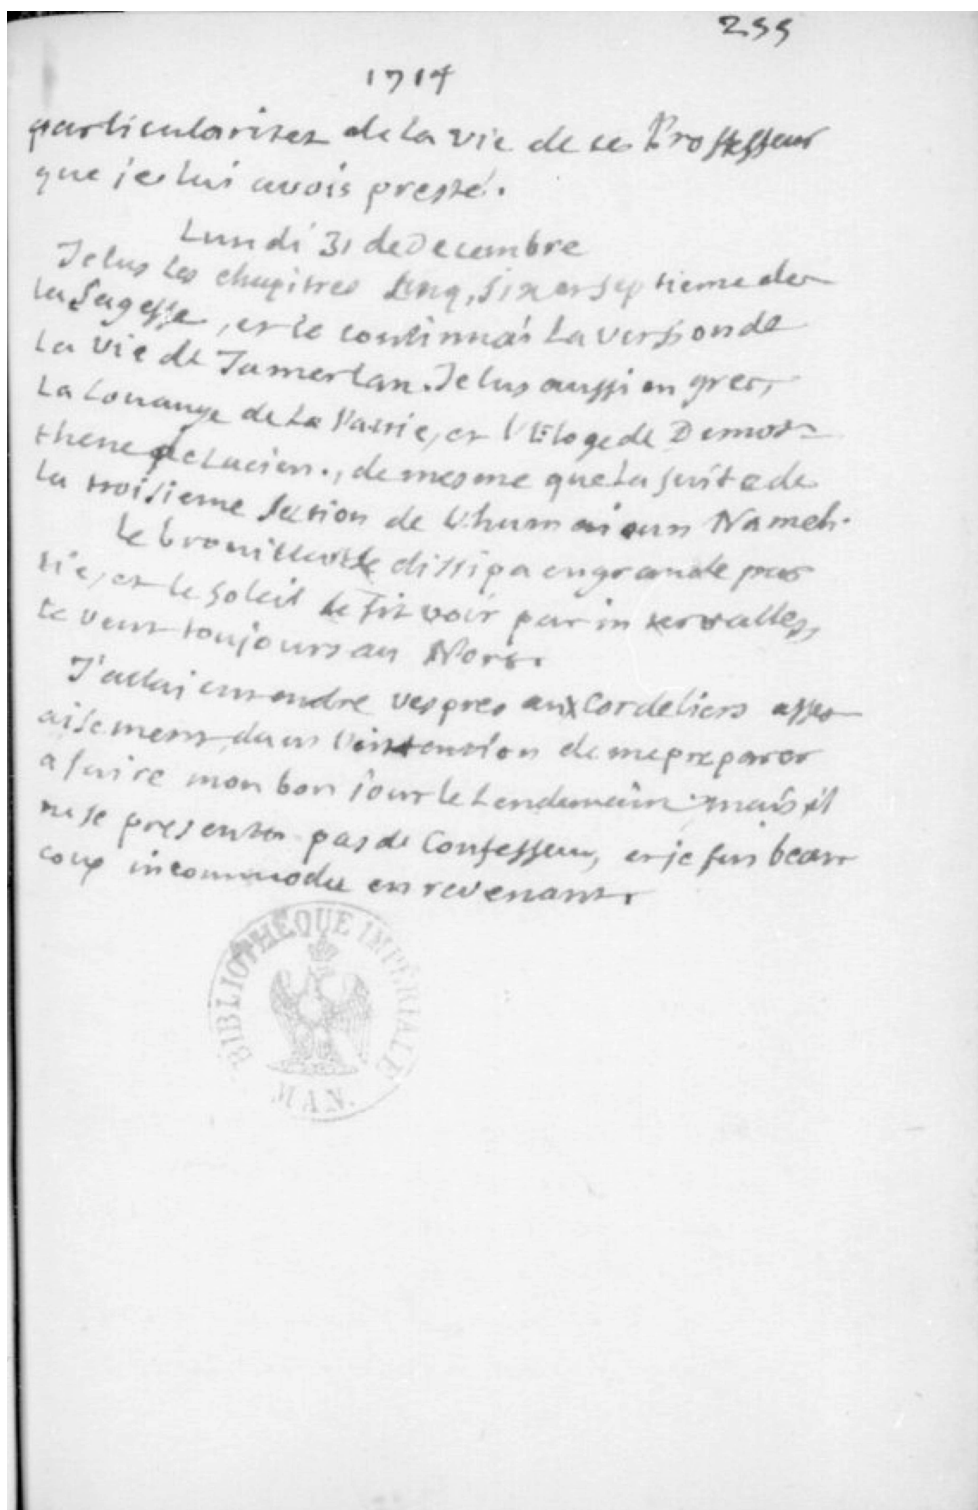 255
1714
particularitez de la vie de ce Professeur
que je lui avois presté.
Lundi 31 de Decembre
Je lus les chapitres cinq, six et septieme de
la Sagesse, et je continuai la version de
la vie de Tamerlan. Je lus aussi en grec,
la Louange de la Patrie, et l'Eloge de Demos-
thene de Lucien., de mesme que la suite de
la troisieme section de l'humaioun Nameh.
Le brouillard se dissipa en grande par-
tie, et le soleil se fit voir par intervalles,
le vent toujours au Nord.
J'allai entendre vespres aux Cordeliers assez
aisement, dans l'intention de me preparer
a faire mon bon jour le Lendemain: mais il
ne se presenta pas de Confesseur, et je fus beau-
coup incommodé en revenant.
BIBLIOTHÈQUE IMPÉRIALE
MAN.